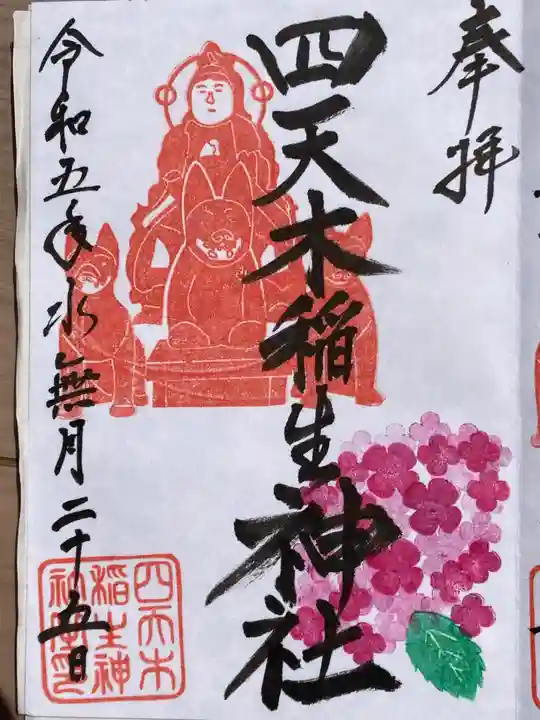 奉拝
四天木稲生神社
令和五年水無月二十五日
四天木
稲生神